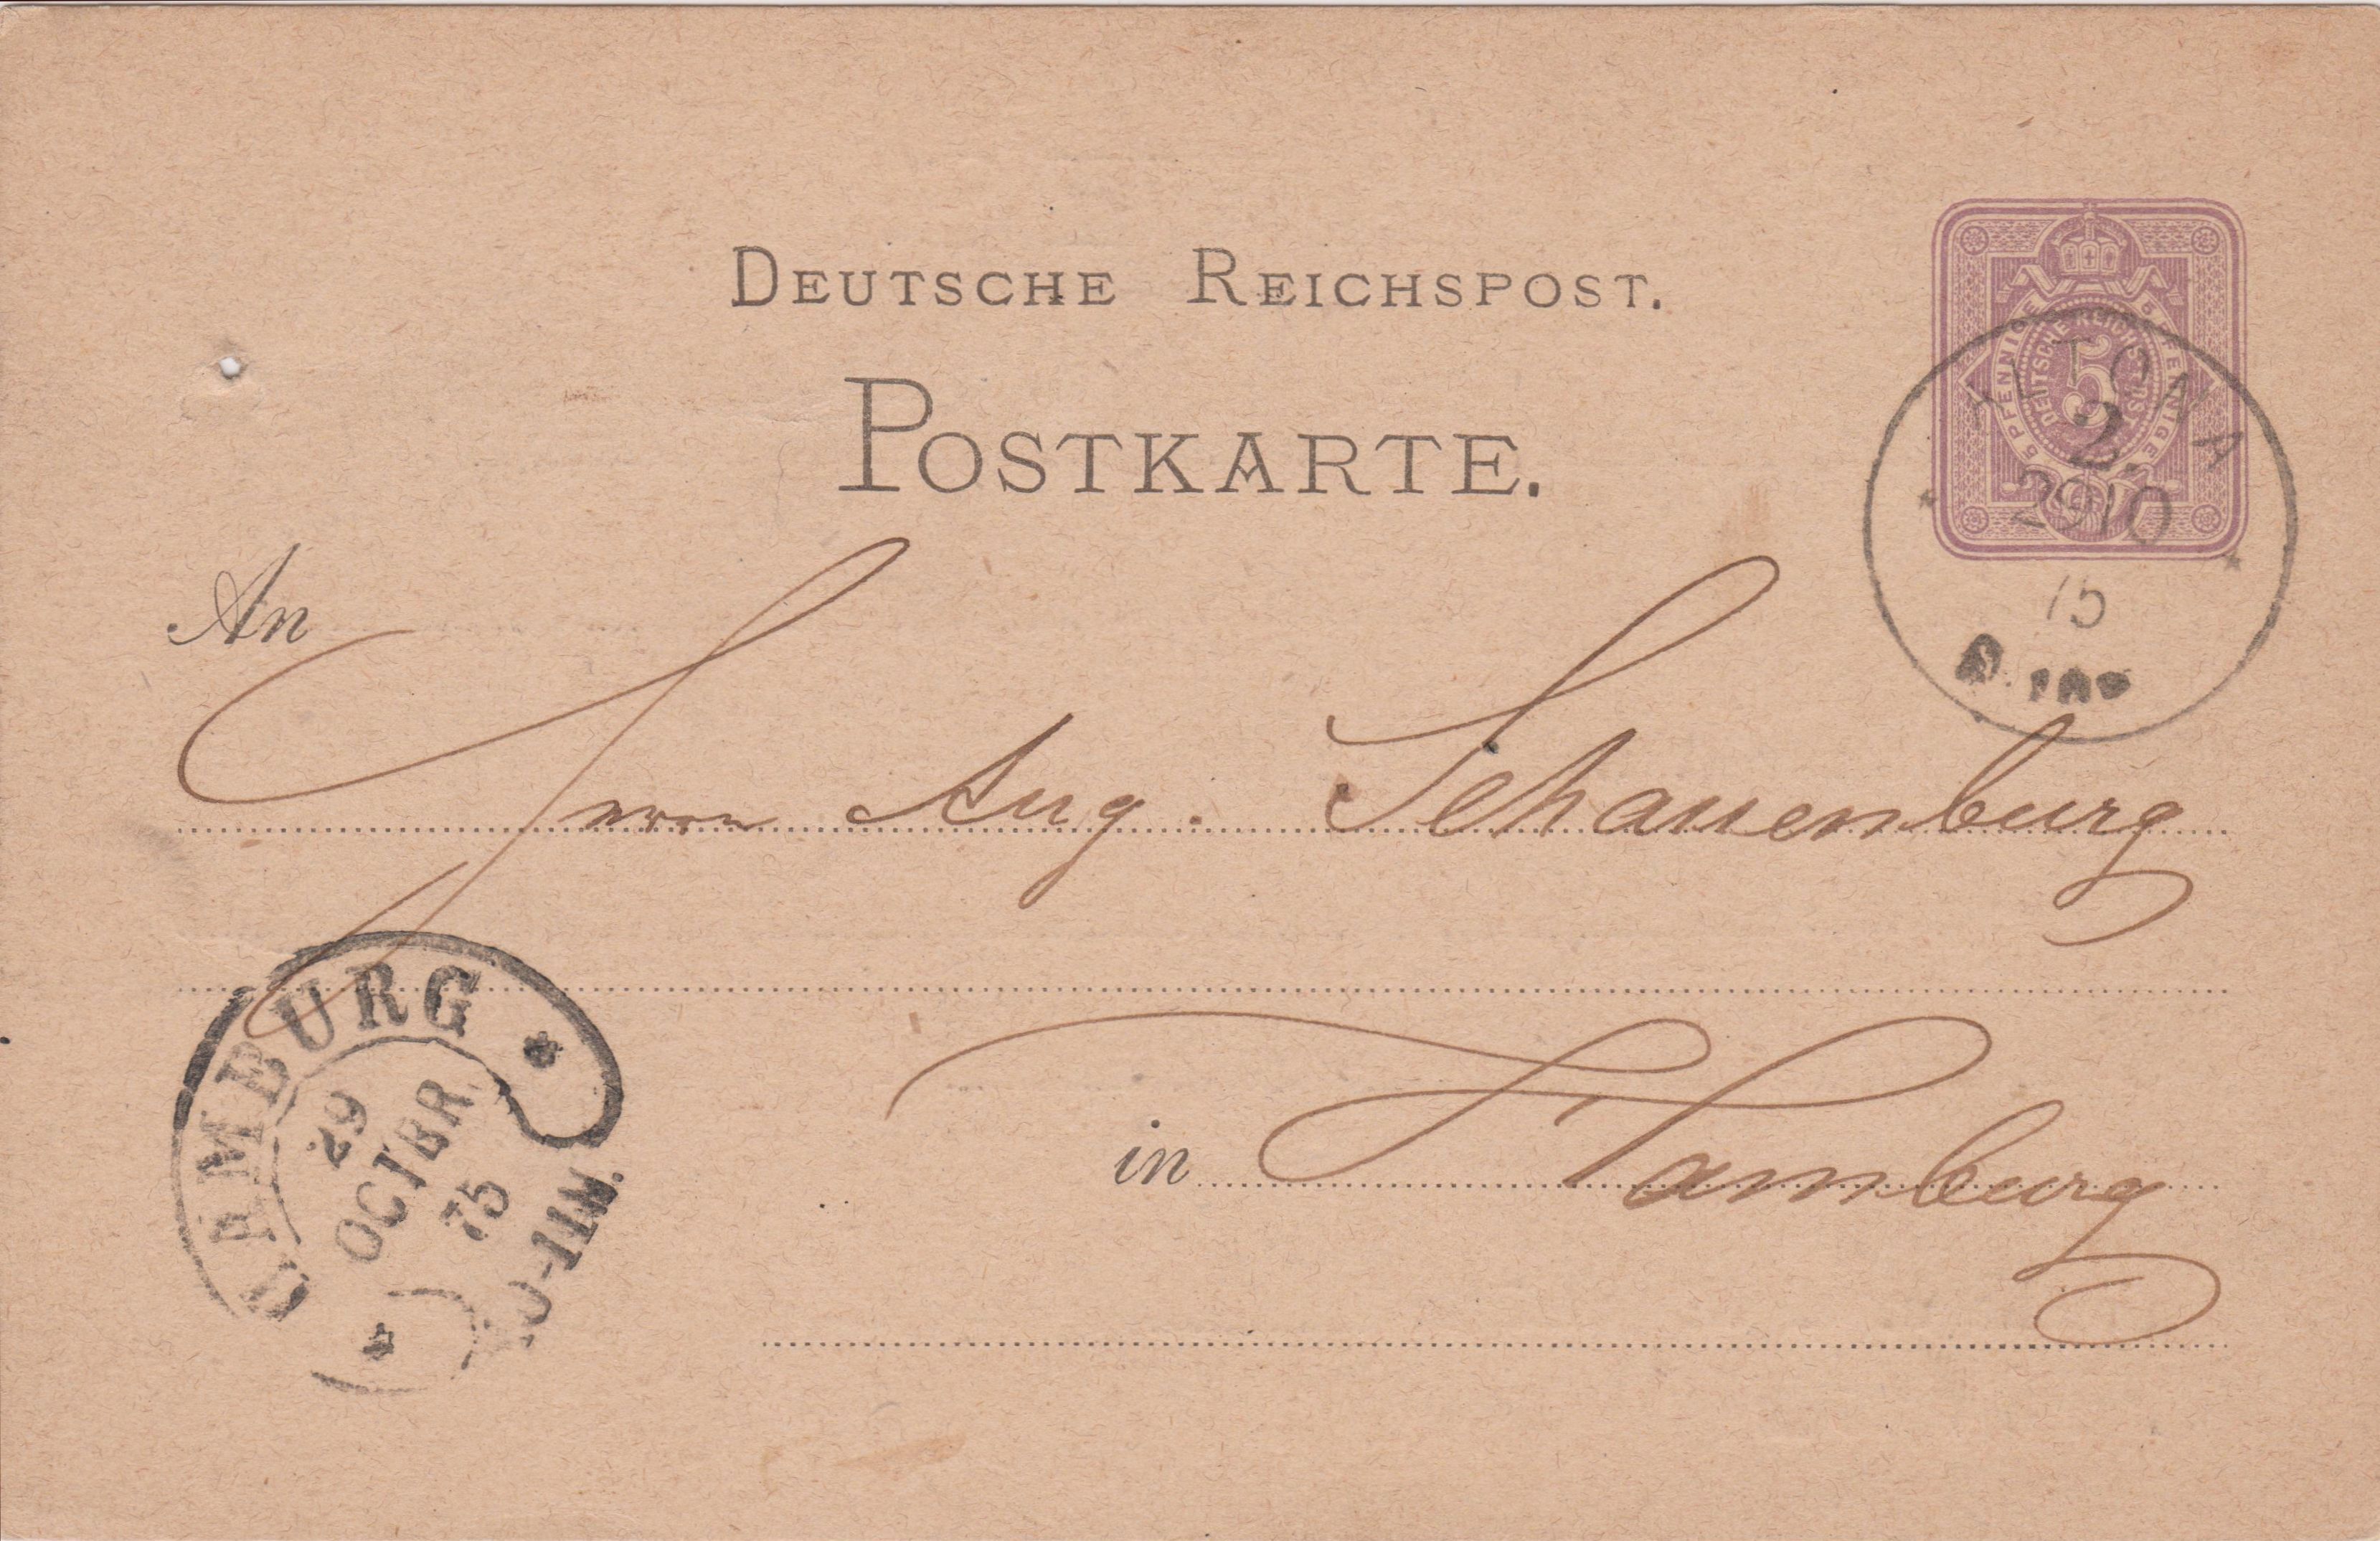 DEUTSCHE REICHSPOST.
POSTKARTE.
5 PFENNIGE 5 PFENNIGE
DEUTSCHE REICHSPOST
5
ALTONA
2.
29 10
75
An
Herrn Aug. Schauenburg
in Hamburg
HAMBURG
29
OCTBR.
75